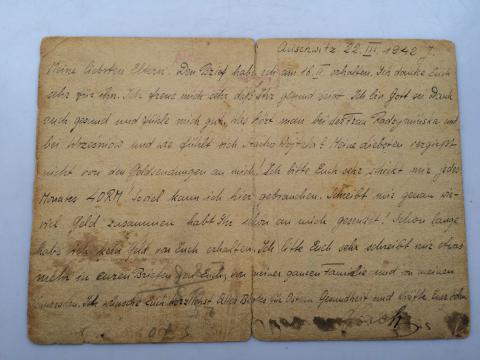 Auschwitz 22.III.1942 r.
Meine liebsten Eltern. Den Brief habe ich am 16.II. erhalten. Ich danke Euch
sehr für ihn. Ich freue mich sehr, daß Ihr gesund seid. Ich bin Gott sei Dank
auch gesund und fühle mich gut. Was hört man bei der Frau
bei und wie fühlt sich ? Meine liebsten vergißt
nicht von den Geldsendungen an mich! Ich bitte Euch sehr, schickt mir jedes
Monates 40RM! Soviel kann ich hier gebrauchen. Schreibt mir genau wie-
viel Geld zusammen habt Ihr schon an mich gesendet! Schon lange
habe ich kein Geld von Euch erhalten. Ich bitte Euch sehr schreibt mir etwas
mehr in euren Briefen von Euch, von meiner ganzen Familie und von meinen
. Ich wünsche Euch herzlichst alles Beste für Ostern, Gesundheit und Kräfte Euer Sohn